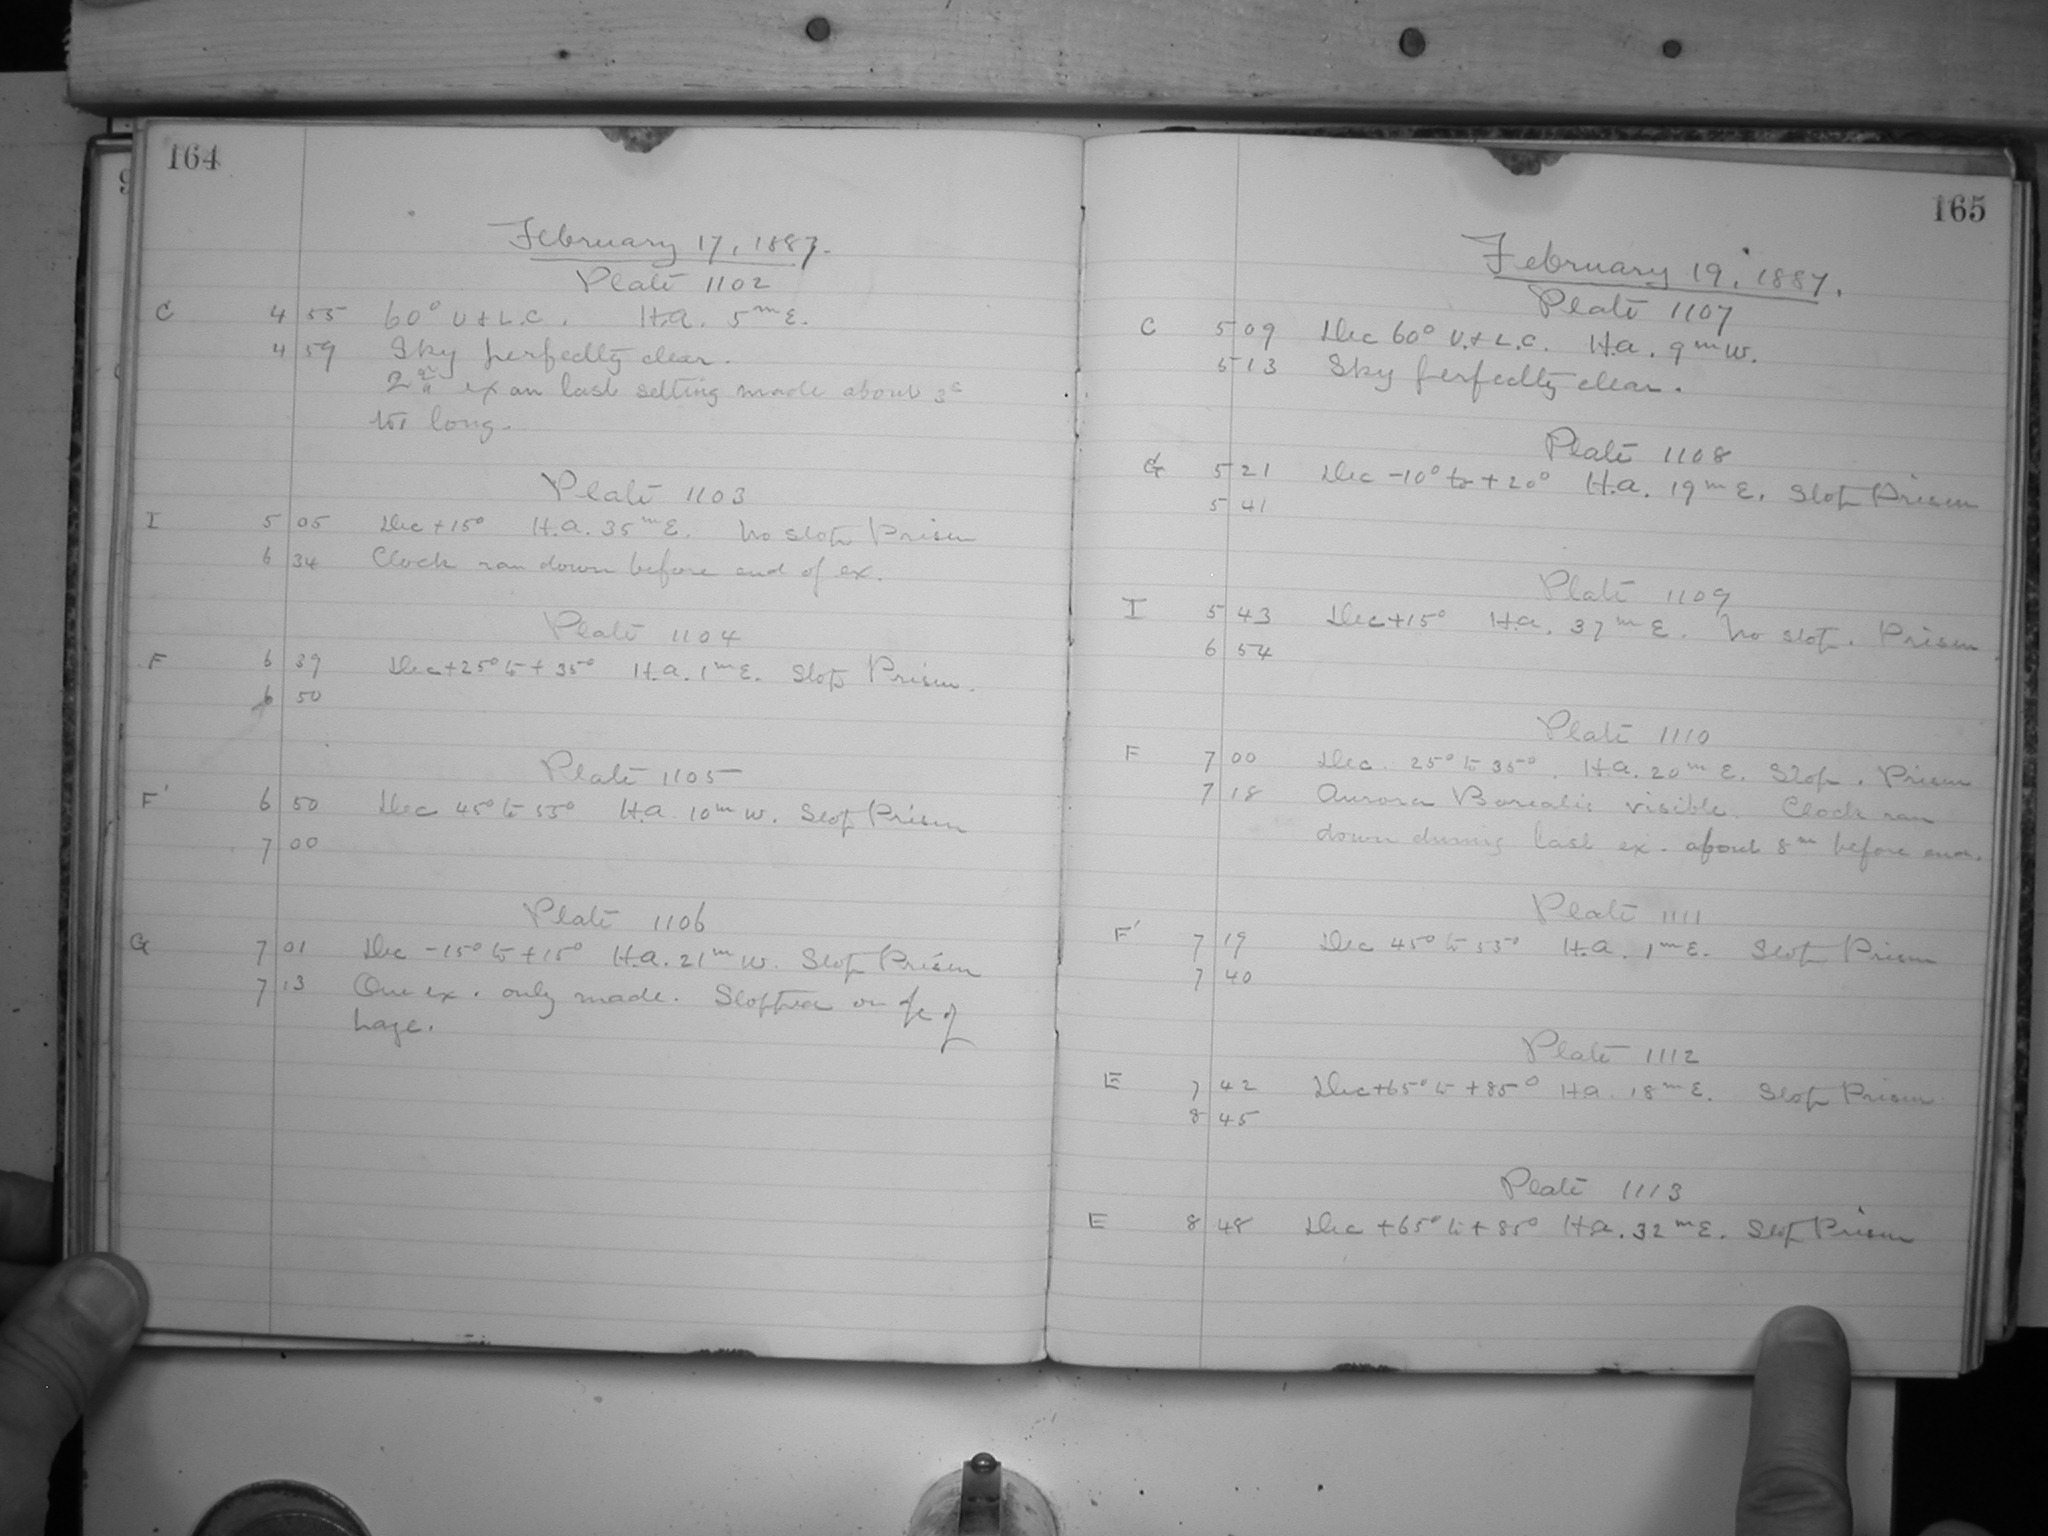 164
February 17, 1887.
Plate 1102
C 4 55 60° U & L.C. H.A. 5m E.
4 59 Sky perfectly clear.
2nd ex on last setting made about 3s
too long.
Plate 1103
I 5 05 Dec +15° H.A. 35m E. No stop Prism
6 34 Clock ran down before end of ex.
Plate 1104
F 6 39 Dec +25° to +35° H.A. 1m E. Stop Prism.
6 50
Plate 1105
F' 6 50 Dec 45° to 55° H.A. 10m W. Stop Prism
7 00
Plate 1106
G 7 01 Dec -15° to +15° H.A. 21m W. Stop Prism
7 13 One ex. only made. Stopped on a/c of
haze.
165
February 19, 1887.
Plate 1107
C 5 09 Dec 60° U. & L.C. H.A. 9m W.
5 13 Sky perfectly clear.
Plate 1108
G 5 21 Dec -10° to +20° H.A. 19m E. Stop Prism
5 41
Plate 1109
I 5 43 Dec +15° H.A. 37m E. No stop. Prism
6 54
Plate 1110
F 7 00 Dec. 25° to 35°. H.A. 20m E. Stop. Prism
7 18 Aurora Borealis visible. Clock ran
down during last ex. about 8m before end.
Plate 1111
F' 7 19 Dec 45° to 55° H.A. 1m E. Stop Prism
7 40
Plate 1112
E 7 42 Dec +65° to +85° H.A. 18m E. Stop Prism
8 45
Plate 1113
E 8 48 Dec +65° to +85° H.A. 32m E. Stop Prism